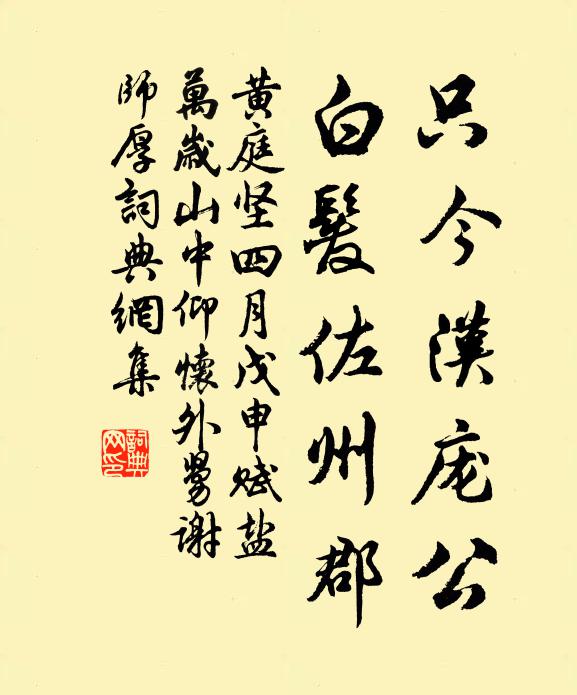 只今漢庞公
白髮佐州郡
黄庭坚四月戊申赋盐
萬歲山中仰懷外舅谢
師厚詞典網集
詞典网印